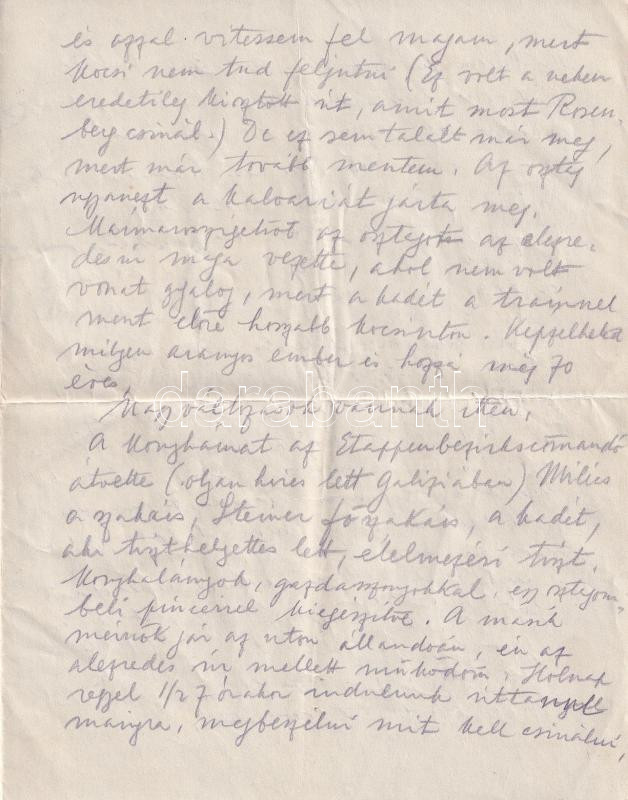 és azzal vitessem fel magam, mert
kocsi nem tud feljutni (Ez volt a nekem
eredetileg kiosztott út, amit most Rosen-
berg csinál.) De ez sem talált már meg,
mert már tovább mentem. Az osztag
ugyanezt a kalvariát járta meg.
Máimaroszigetrőt az osztagot az alezre-
des úr maga vezette, ahol nem volt
vonat gyalog, mert a kadét a trainnel
ment előre hosszabb kocsiúton. Kepzelheted
milyen aranyos ember és hozzá még 70
éves.
Nagy változások vannak itten,
A konyháinat az Etappenbezirkscomandó
átvette (olyan híres lett Galiziában) Milics
a szakács, Steiner főszakács, a kadét,
aki tiszthelyettes lett, élelmezési tiszt.
Konyhalányok, gazdasszonyokkal, egy osztagom-
beli pincérrel kiegészítve. A másik
mérnök jár az uton állandoán, én az
alezredes úr mellett működöm. Holnap
reggel 1/2 7 órakor indulunk
maigra, megbeszélni mit kell csinálni,
darabanth